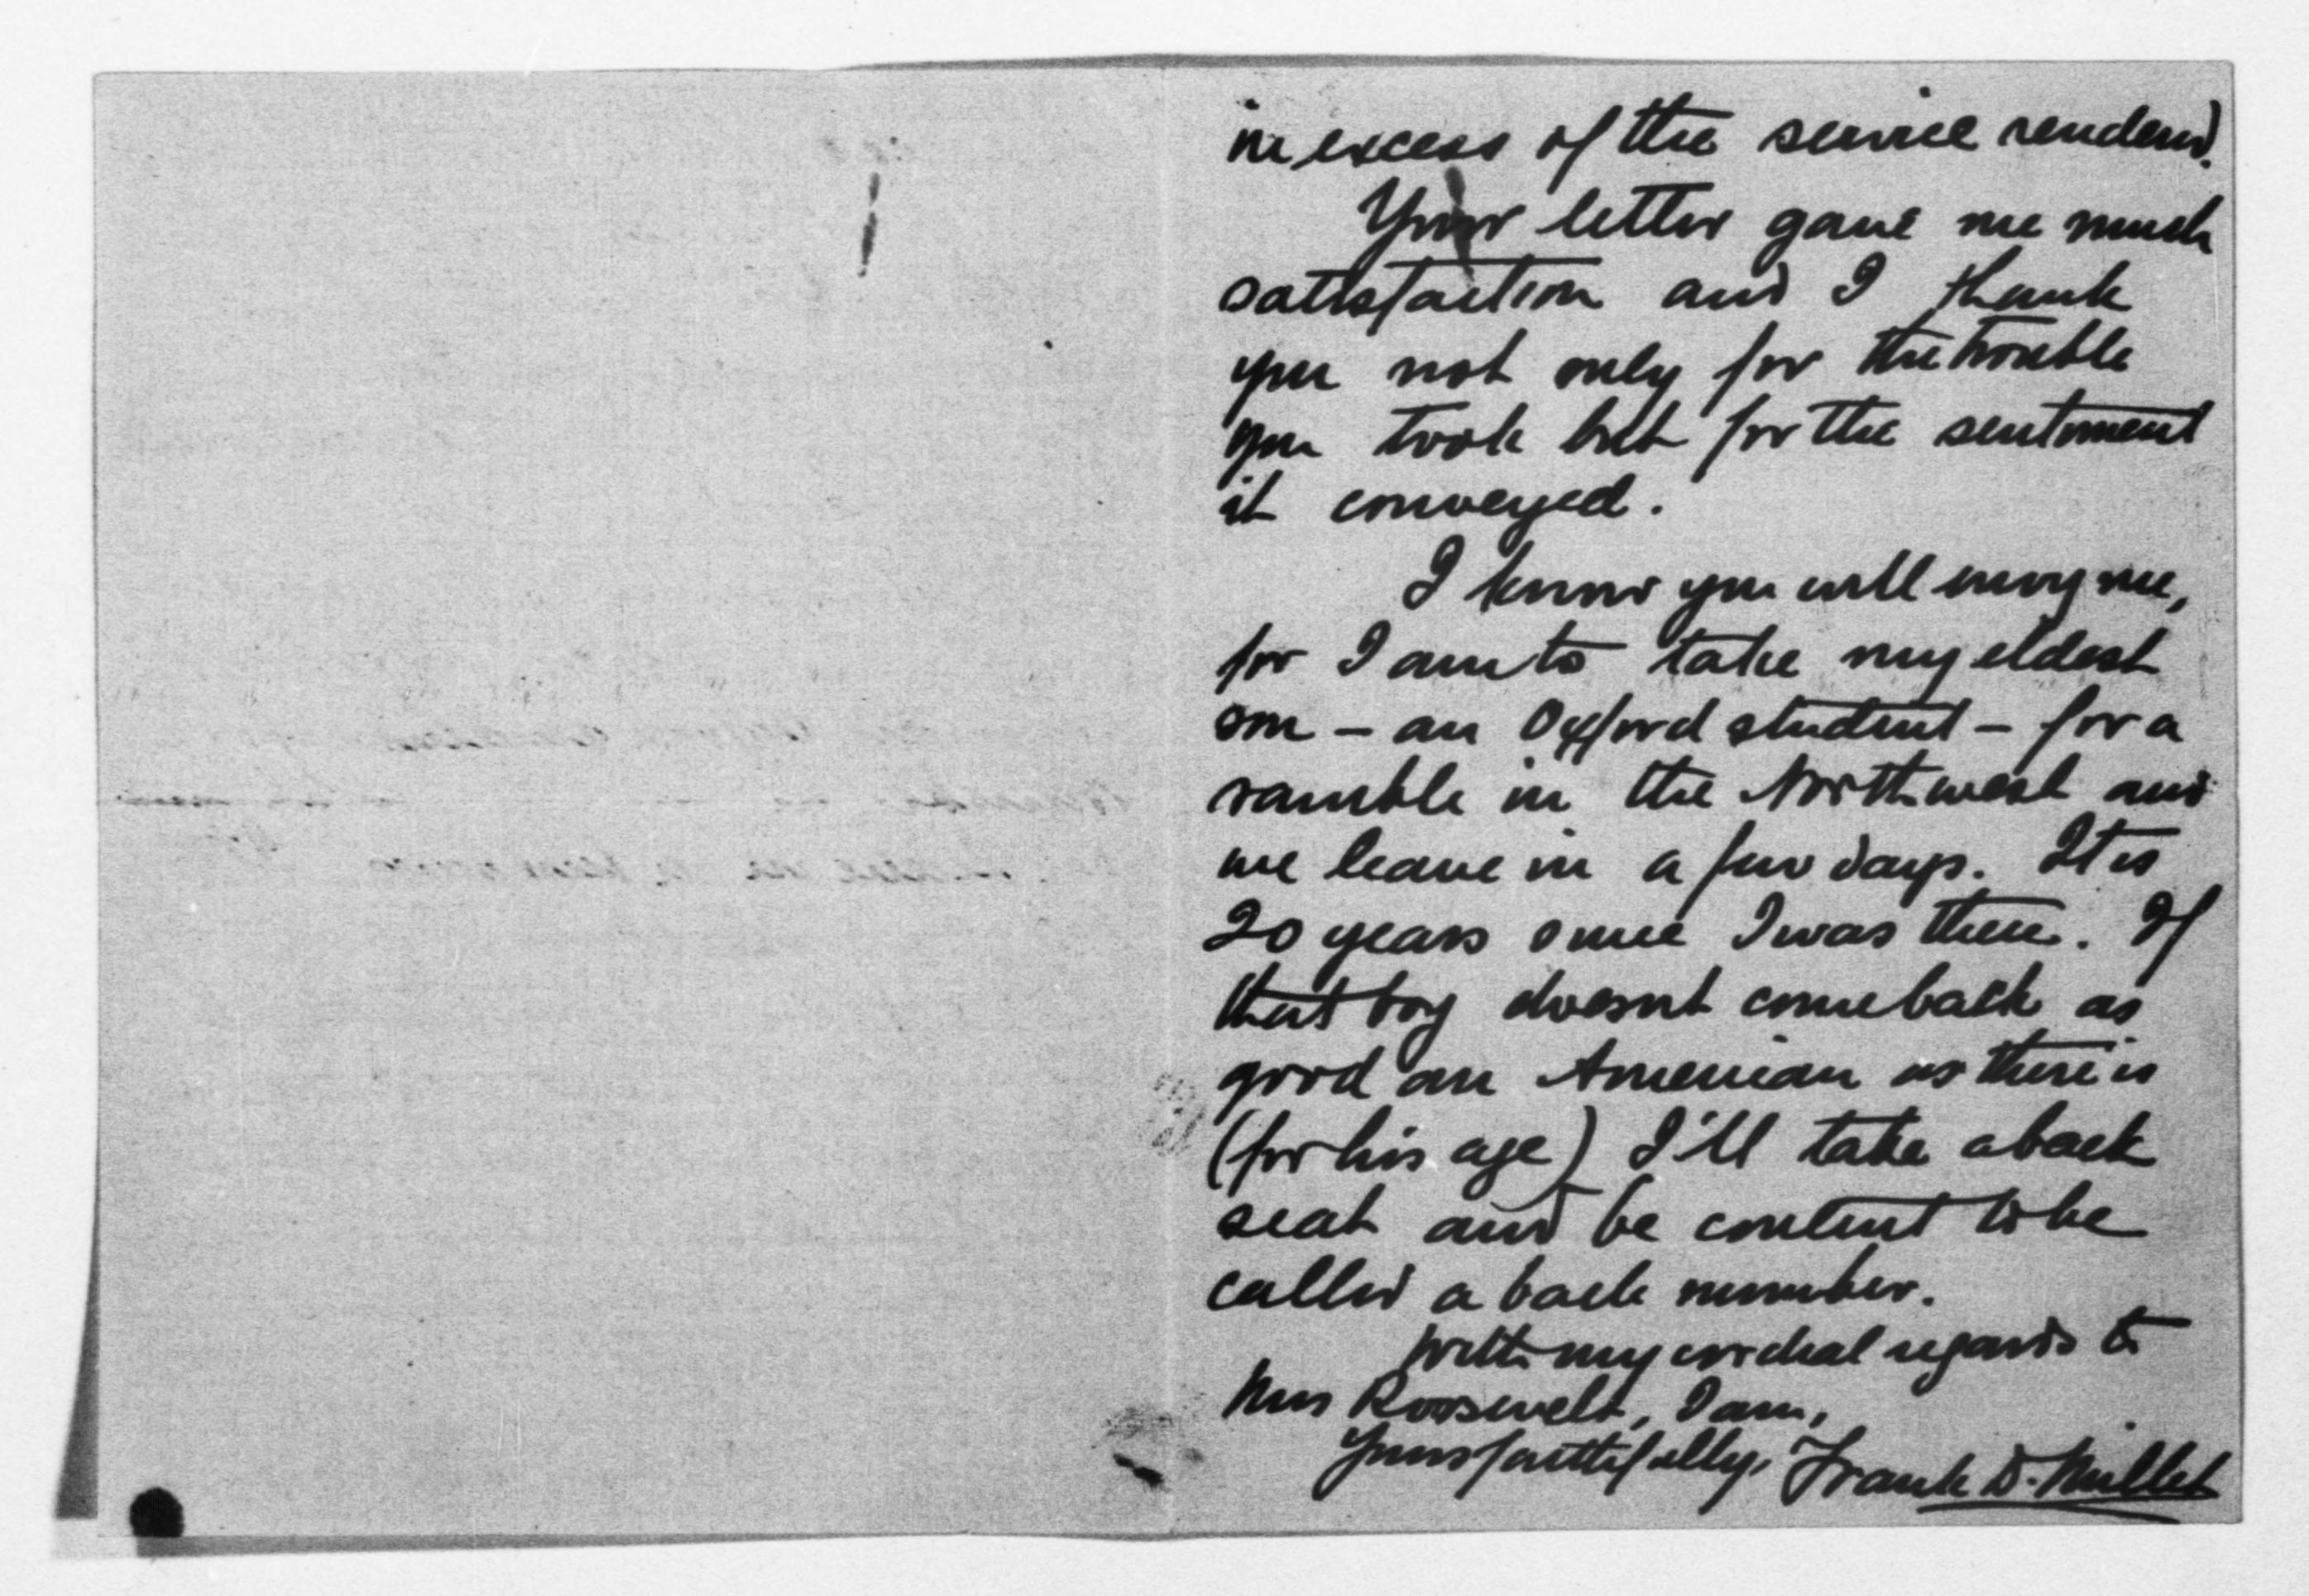 in excess of the service rendered.
Your letter gave me much
satisfaction and I thank
you not only for the trouble
you took but for the sentiment
it conveyed.
I know you will envy me,
for I am to take my eldest
son – an Oxford student – for a
ramble in the Northwest and
we leave in a few days. It is
20 years since I was there. If
that boy doesnt come back as
good an American as there is
(for his age) I'll take a back
seat and be content to be
called a back number.
With my cordial regards to
Mrs Roosevelt, I am,
Yours faithfully, Frank D. Millet